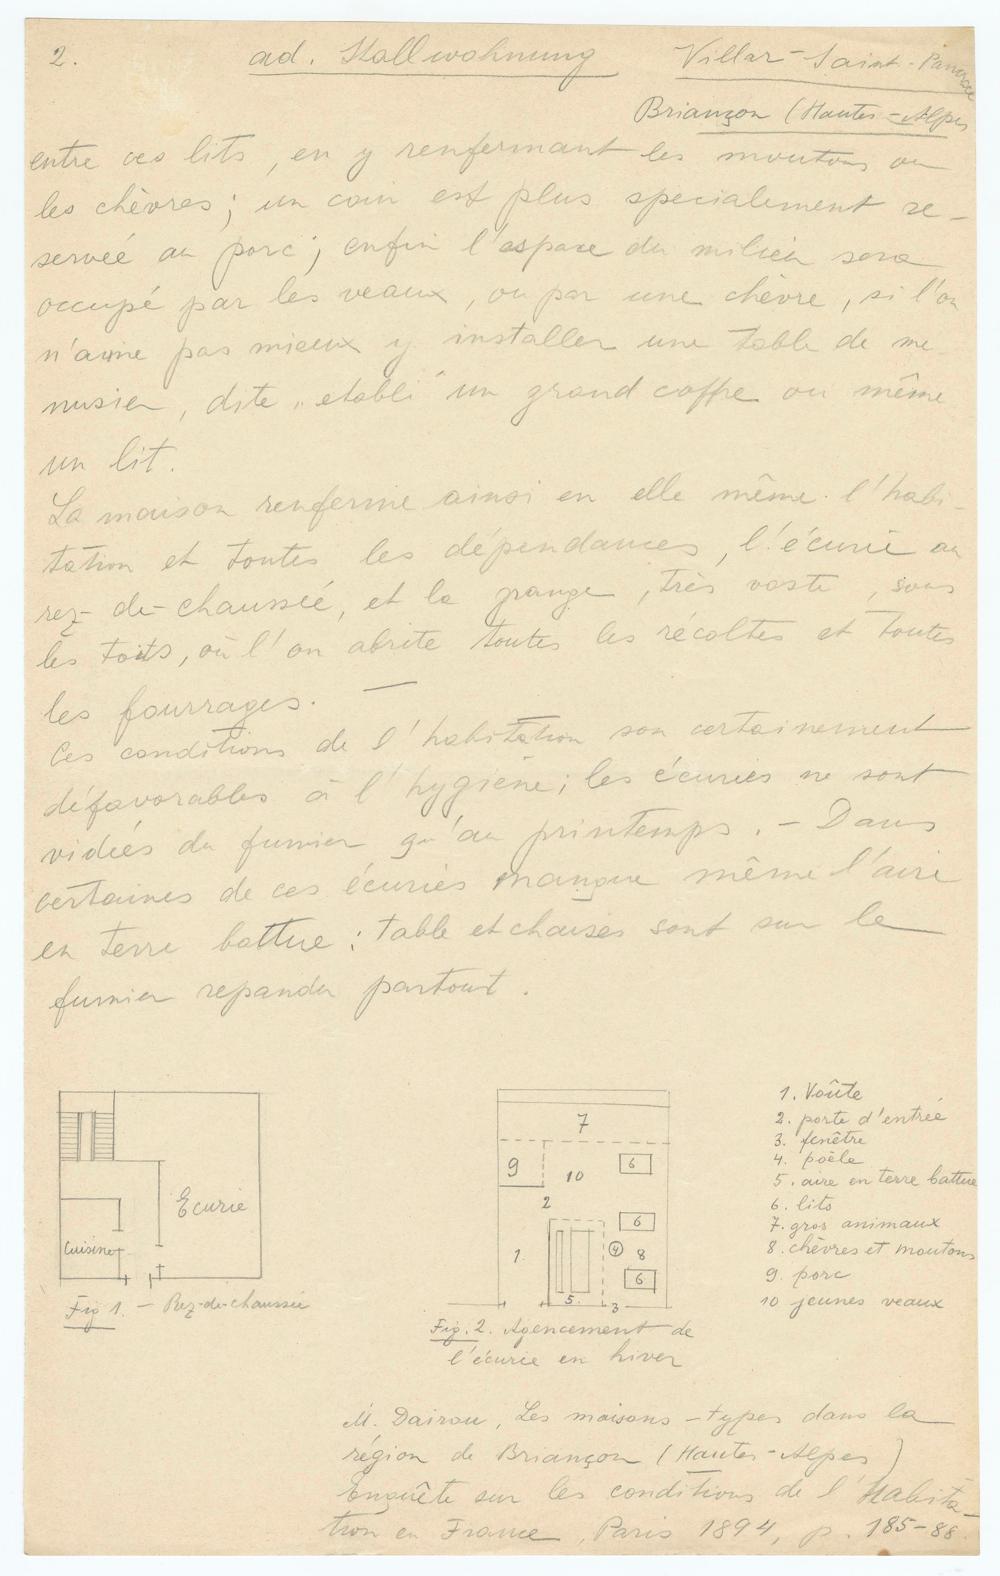 2. ad. Stallwohnung Villar-Saint-Pancrace
Briançon (Hautes-Alpes
entre ces lits, en y renfermant les moutons ou
les chèvres; un coin est plus specialement re-
serveé au porc; enfin l'espace du milieu sera
occupé par les veaux, ou par une chèvre, si l'on
n'aime pas mieux y installer une table de me
nusier, dite „etabli" un grand coffre ou même
un lit.
La maison renferme ainsi en elle même l'habi-
tation et toutes les dépendances, l'écurie au
rez-de-chaussée, et la grange, très vaste, sous
les toits, où l'on abrite toutes les récoltes et toutes
les fourrages. —
Ces conditions de l'habitation son certainement
défavorables à l'hygiène; les écuries ne sont
vidées du fumier qu'au printemps. - Dans
certaines de ces écuries manque même l'aire
en terre battue: table et chaises sont sur le
fumier repandu partout.
Ecurie
Cuisine
Fig 1. - Rez-de-chaussée
7
9
10
6
2
6
1.
4
8
6
5.
3
Fig. 2. Agencement de
l'écurie en hiver
1. Voûte
2. porte d'entrée
3. fenêtre
4. poêle
5. aire en terre battue
6. lits
7. gros animaux
8. chèvres et moutons
9. porc
10 jeunes veaux
M. Dairou, Les maisons-types dans la
région de Briançon (Hautes-Alpes)
Enquête sur les conditions de l'Habita-
tion en France, Paris 1894, p. 185-88.